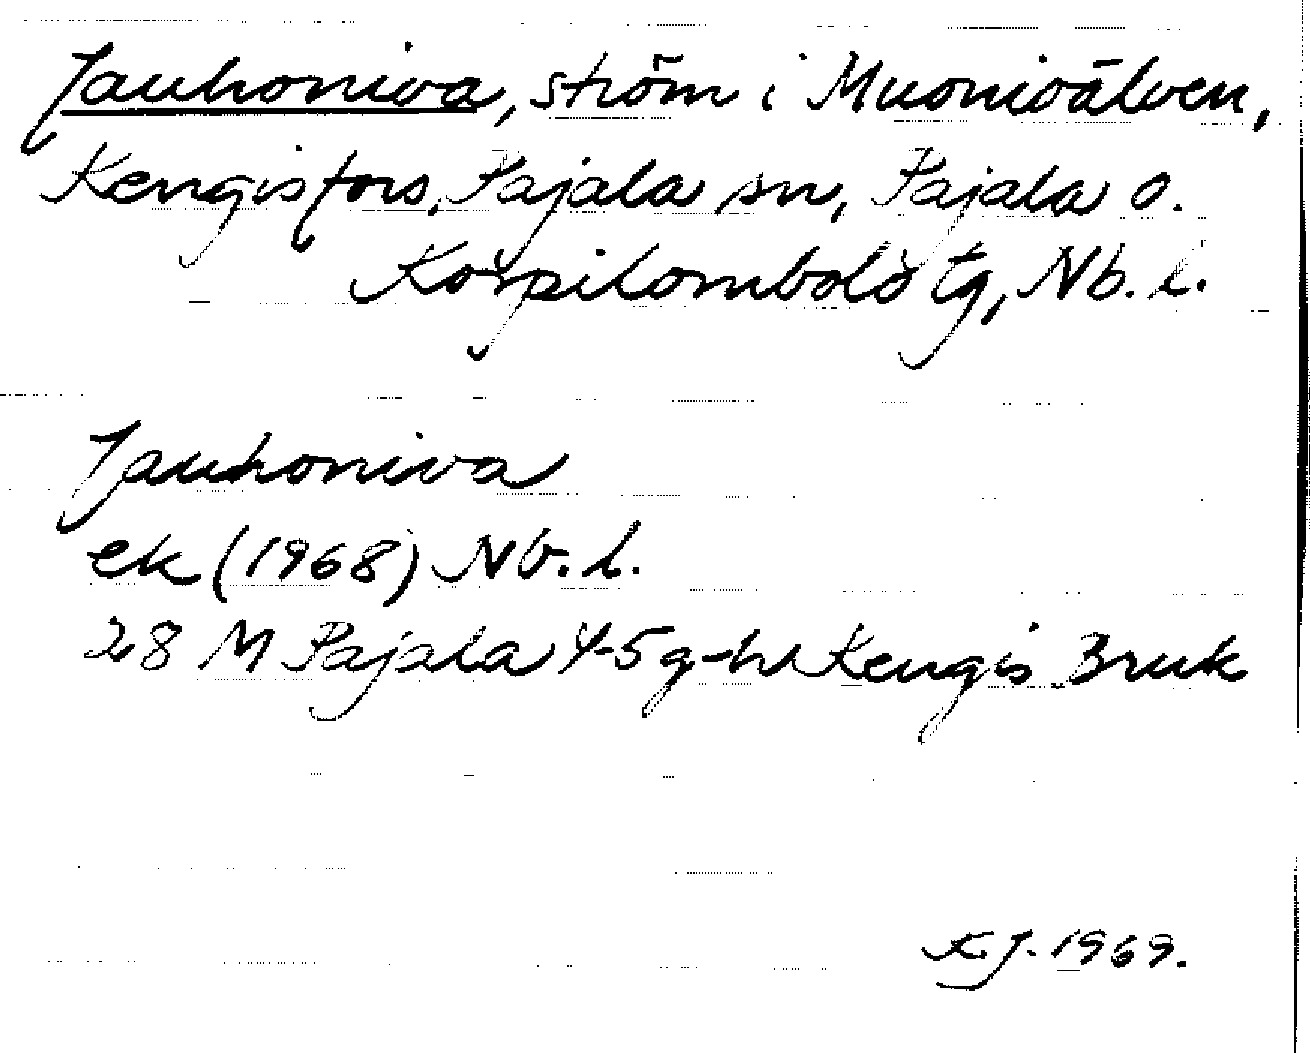 Jauhoniva, ström i Muonioälven,
Kengisfors, Pajala sn, Pajala o.
Korpilombolo tg, Nb. l.
Jauhoniva
ek (1968) Nb. l.
28 M Pajala 4-5 g-h Kengis Bruk
K.J. 1969.